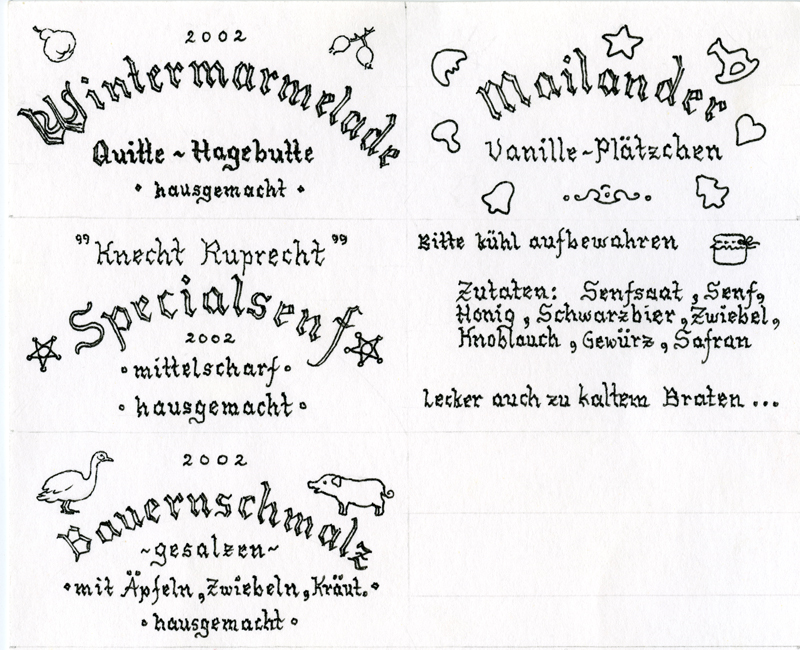 2002
Wintermarmelade
Quitte ~ Hagebutte
• hausgemacht •
Mailander
Vanille~Plätzchen
"Knecht Ruprecht"
Specialsenf
2002
• mittelscharf •
• hausgemacht •
Bitte kühl aufbewahren
Zutaten: Senfsaat, Senf,
Honig, Schwarzbier, Zwiebel,
Knoblauch, Gewürz, Safran
Lecker auch zu kaltem Braten ...
2002
Bauernschmalz
~gesalzen~
• mit Äpfeln, Zwiebeln, Kräut. •
• hausgemacht •